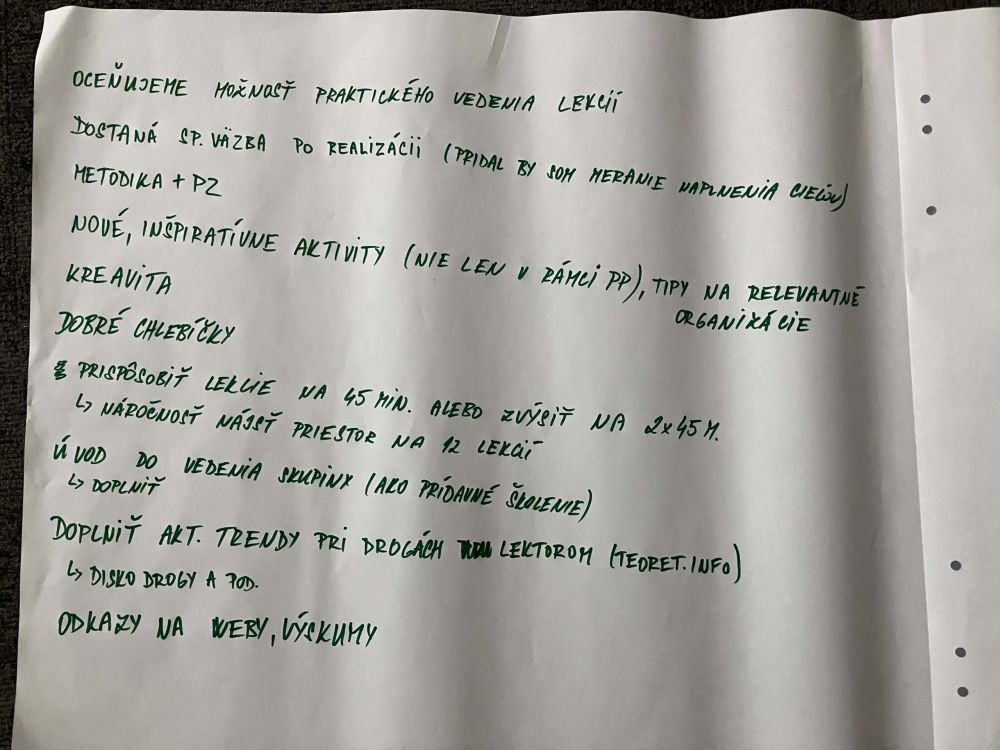 OCEŇUJEME MOŽNOSŤ PRAKTICKÉHO VEDENIA LEKCIÍ
DOSTANÁ SP. VÄZBA PO REALIZÁCII (PRIDAL BY SOM MERANIE NAPLNENIA CIEĽOV)
METODIKA + PZ
NOVÉ, INŠPIRATÍVNE AKTIVITY (NIE LEN V RÁMCI PP), TIPY NA RELEVANTNÉ
ORGANIZÁCIE
KREAVITA
DOBRÉ CHLEBÍČKY
PRISPÔSOBIŤ LEKCIE NA 45 MIN. ALEBO ZVÝSIŤ NA 2x45 M.
↳ NÁROČNOSŤ NÁJSŤ PRIESTOR NA 12 LEKCIÍ
ÚVOD DO VEDENIA SKUPINY (AKO PRÍDAVNÉ ŠKOLENIE)
↳ DOPLNIŤ
DOPLNIŤ AKT. TRENDY PRI DROGÁCH LEKTOROM (TEORET. INFO)
↳ DISKO DROGY A POD.
ODKAZY NA WEBY, VÝSKUMY